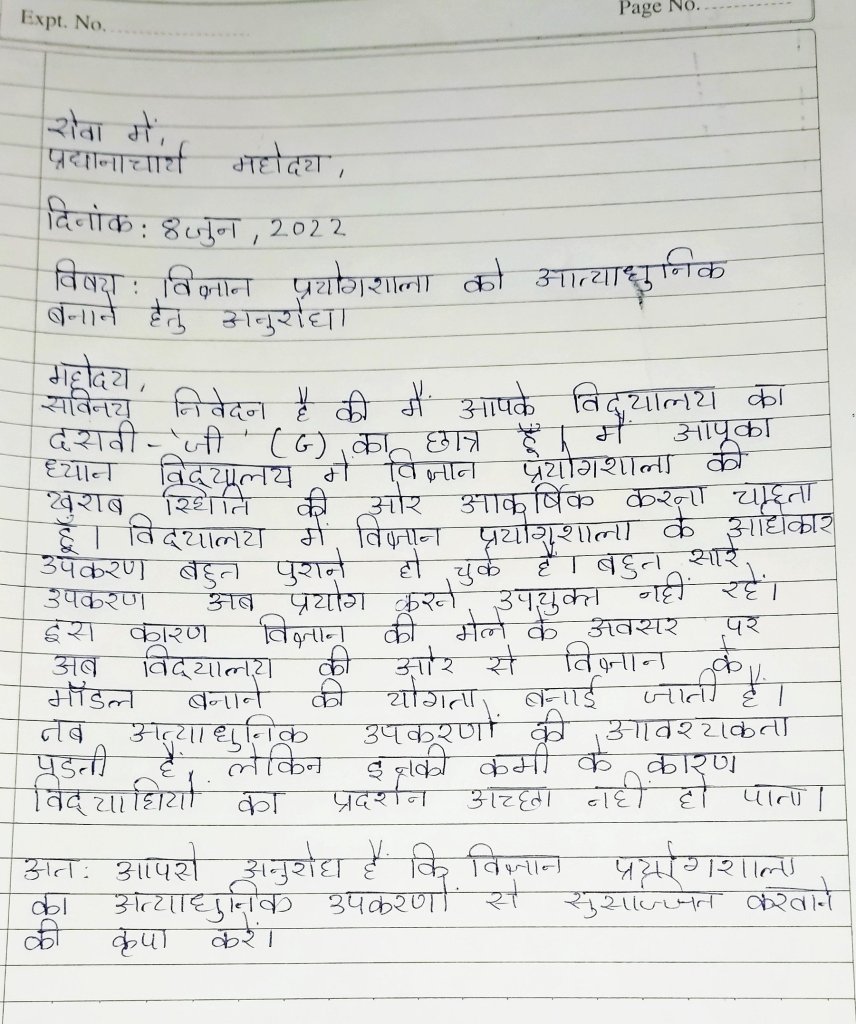 Expt. No.
Page No.
सेवा में,
प्रधानाचार्य महोदय,
दिनांक: 8 जुन, 2022
विषय: विज्ञान प्रयोगशाला को आत्याधुनिक
बनाने हेतु अनुरोध।
महोदय,
सविनय निवेदन है की मैं आपके विद्यालय का
दसवी - 'जी' (G) का छात्र हूँ। मैं आपका
ध्यान विद्यालय में विज्ञान प्रयोगशाला की
खराब स्थिति की ओर आकर्षिक करना चाहता
हूँ। विद्यालय में विज्ञान प्रयोगशाला के अधिकार
उपकरण बहुत पुराने हो चुके है। बहुत सारे
उपकरण अब प्रयोग करने उपयुक्त नहीं रहें।
इस कारण विज्ञान की मेले के अवसर पर
अब विद्यालय की ओर से विज्ञान के
मॉडल बनाने की योगता बनाई जाती है।
तब अत्याधुनिक उपकरणों की आवश्यकता
पडती हैं, लेकिन इनकी कमी के कारण
विद्याथियों का प्रदर्शन अच्छा नहीं हो पाता।
अत: आपसे अनुरोध हैं कि विज्ञान प्रयोगशाला
का अत्याधुनिक उपकरणों से सुसज्जित करवाने
की कृपा करें।